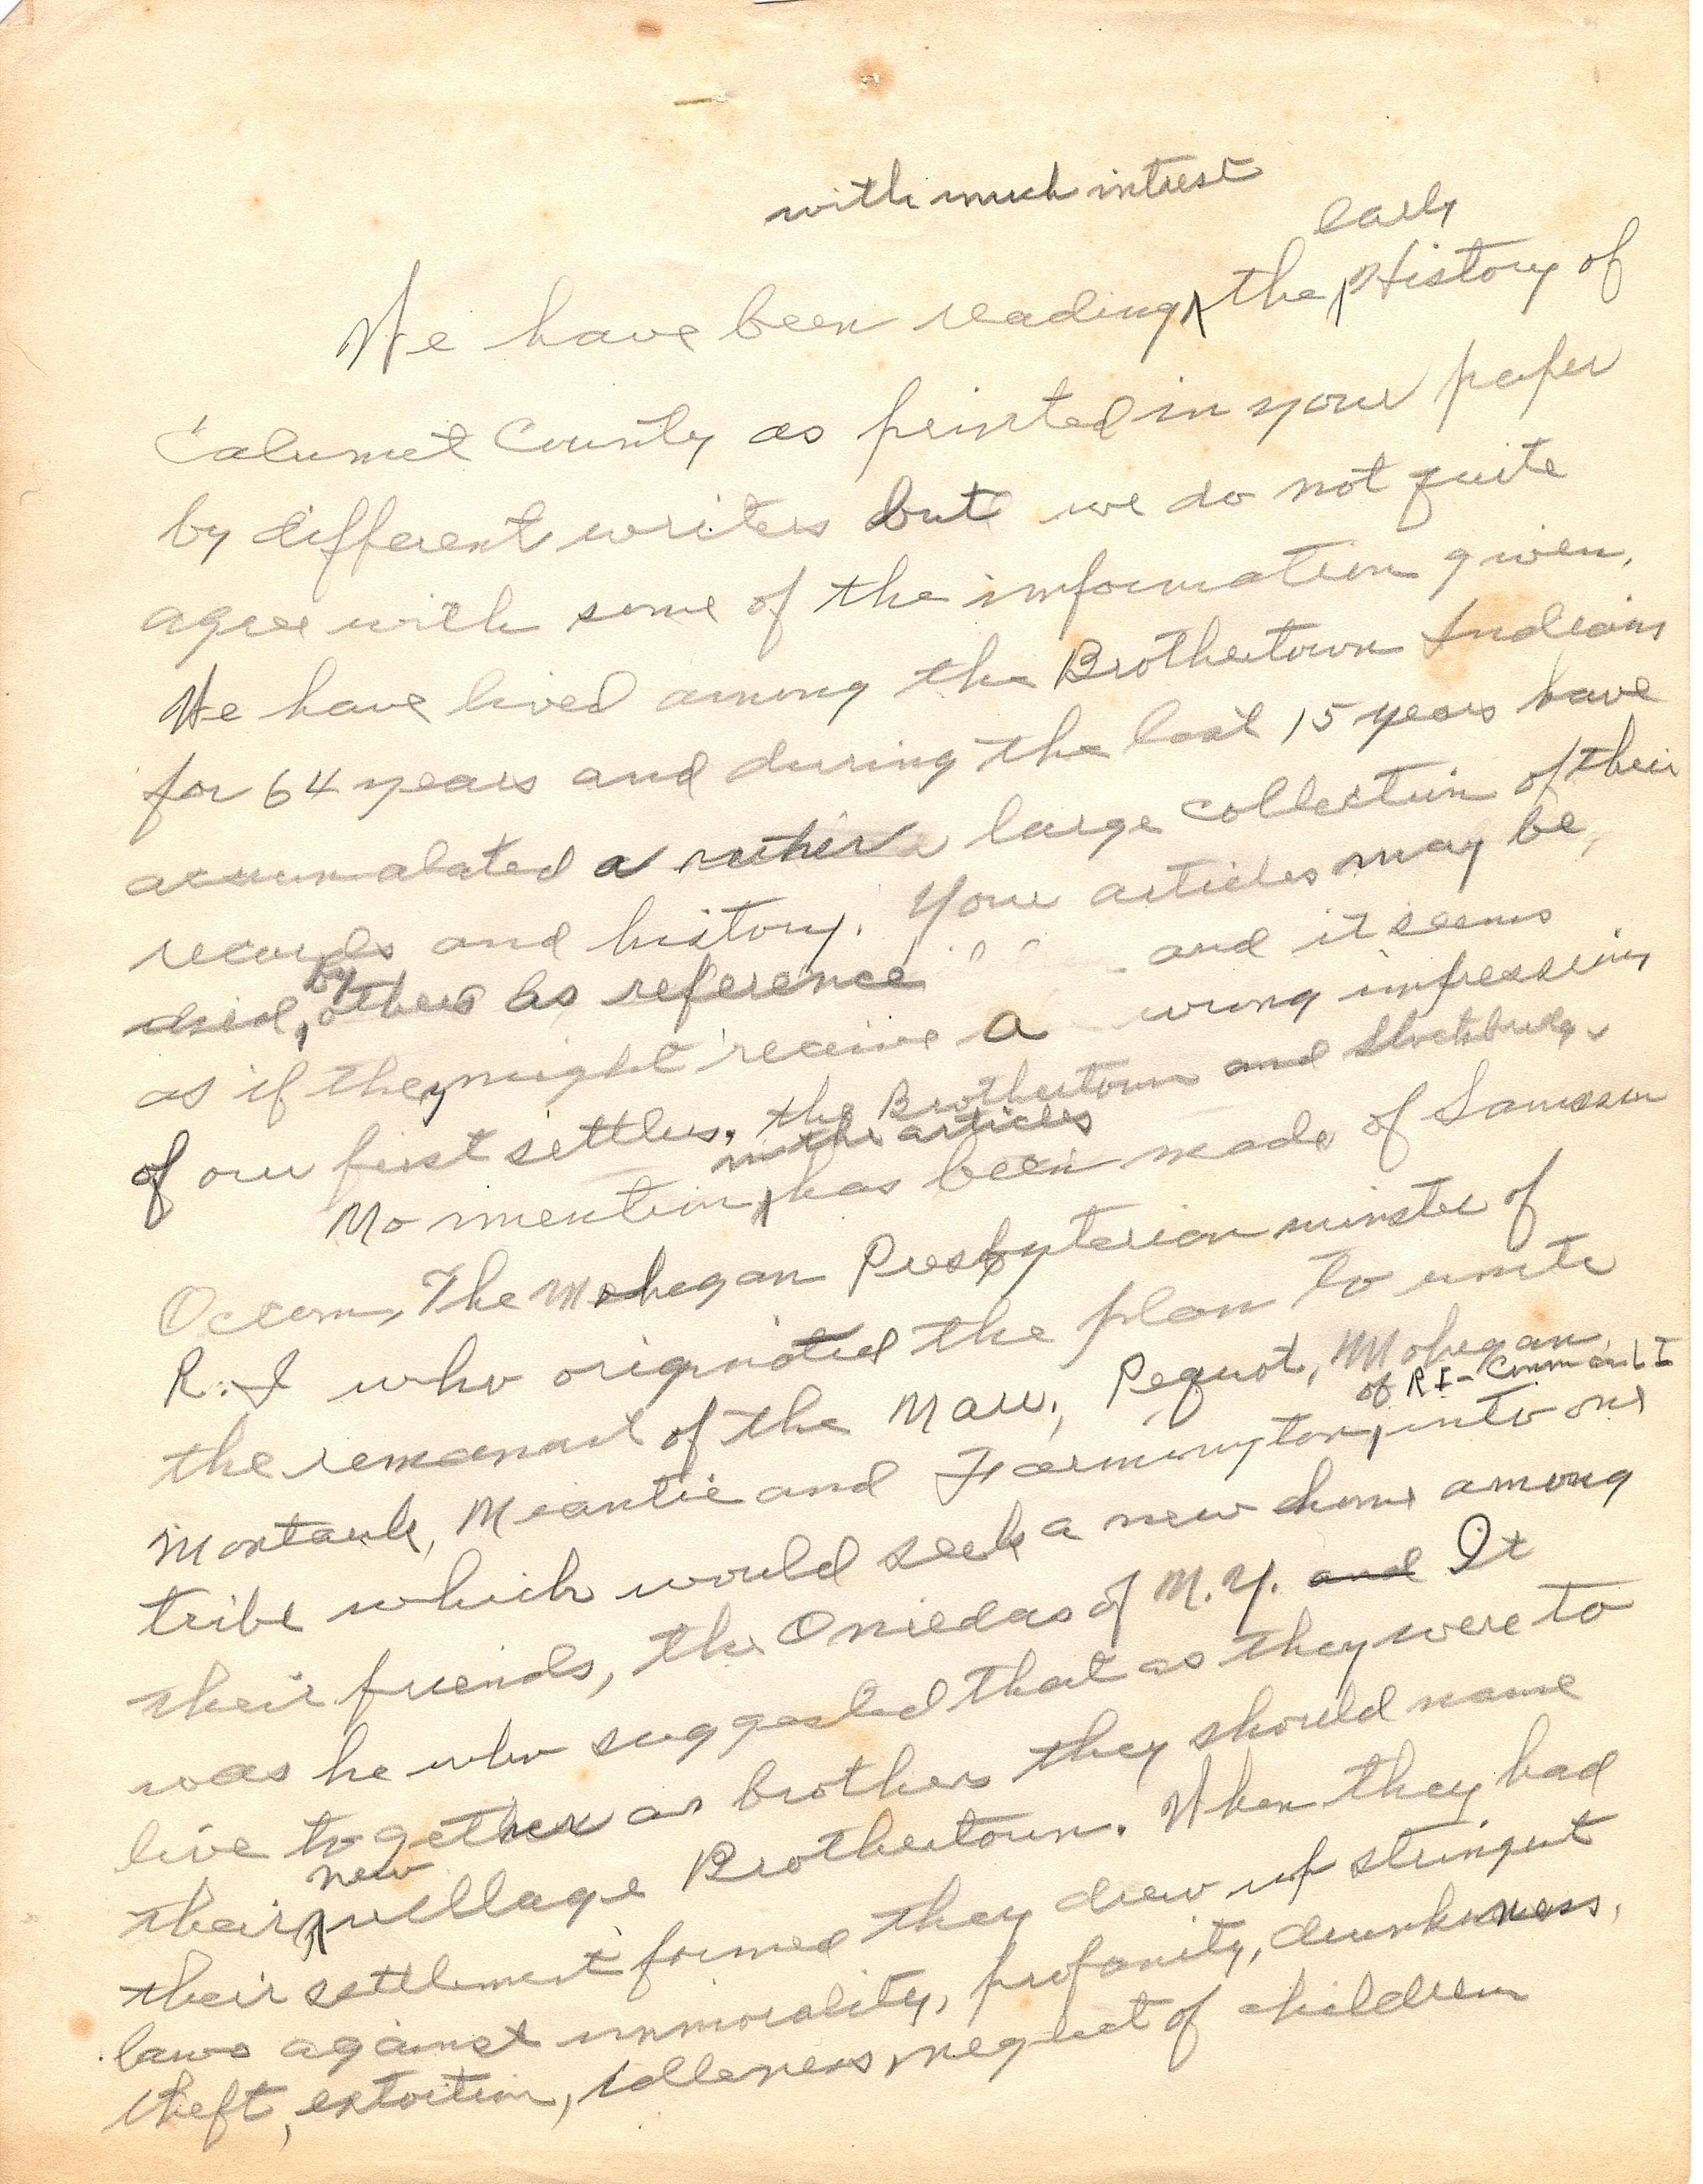 with much intrest
early
We have been reading ^ the ^ History of
Calumet County as printed in your paper
by different writers but we do not quite
agree with some of the information given.
We have lived among the Brothertown Indians
for 64 years and during the last 15 years have
accumalated a rather large collection of their
records and history. Your articles may be,
by
used, others as reference and it seems
as if they might receive a wrong impression
of our first settlers. the Brothertown and Stockbridge.
in the articles
No mention ^ has been made of Samson
Occom, The Mohegan Presbyterian minster of
R.I who originated the plan to unite
the remanant of the Narr., Pequot, Mohegan
of R I - Conn and L I
Montauk, Niantic and Farmington, into one
tribe which would seek a new home among
their friends, the Oniedas of N.Y. and It
was he who suggested that as they were to
live together as brothers they should name
new
their ^ village Brothertown. When they had
their settlement formed they drew up stringent
laws against immorality, profanity, drunkenness,
theft, extortion, idleness, neglect of children